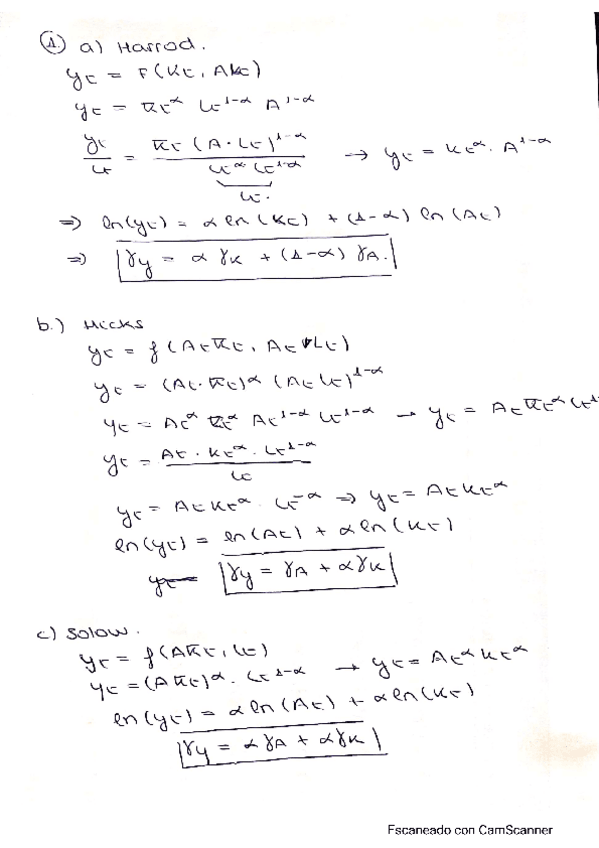 ① a) Harrod.
yt = F(Kt, ALt)
yt = Kt^α Lt^1-α A^1-α
yt/Lt = Kt (A·Lt)^1-α / Lt^α Lt^1-α → yt = Kt^α · A^1-α
Lt.
⇒ ln(yt) = α ln(Kt) + (1-α) ln(At)
⇒ γy = α γK + (1-α) γA.
b.) Hicks
yt = f(At Kt, At Lt)
yt = (At·Kt)^α (At Lt)^1-α
yt = At^α Kt^α At^1-α Lt^1-α → yt = At Kt^α Lt^1-α
yt = At·Kt^α·Lt^1-α / Lt
yt = At Kt^α · Lt^-α ⇒ yt = At Kt^α
ln(yt) = ln(At) + α ln(Kt)
γy = γA + αγK
c) Solow.
yt = f(AKt, Lt)
yt = (AKt)^α · Lt^1-α → yt = At^α Kt^α
ln(yt) = α ln(At) + α ln(Kt)
γy = αγA + αγK
Escaneado con CamScanner